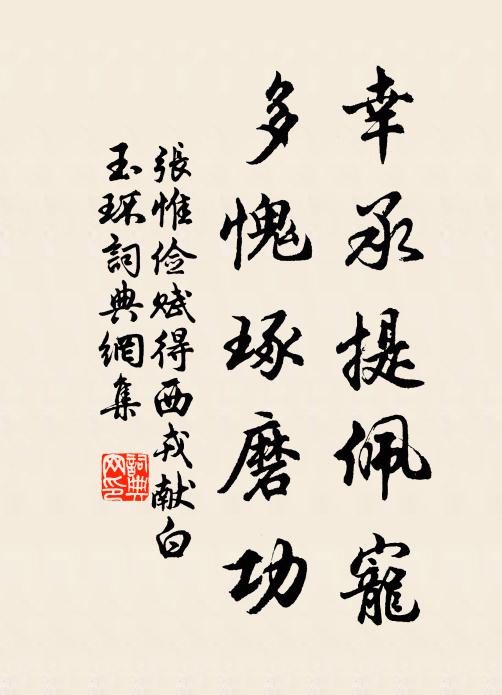 幸承提佩寵
多愧琢磨功
張惟儉賦得西戎献白
玉環詞典網集
詞典
网印